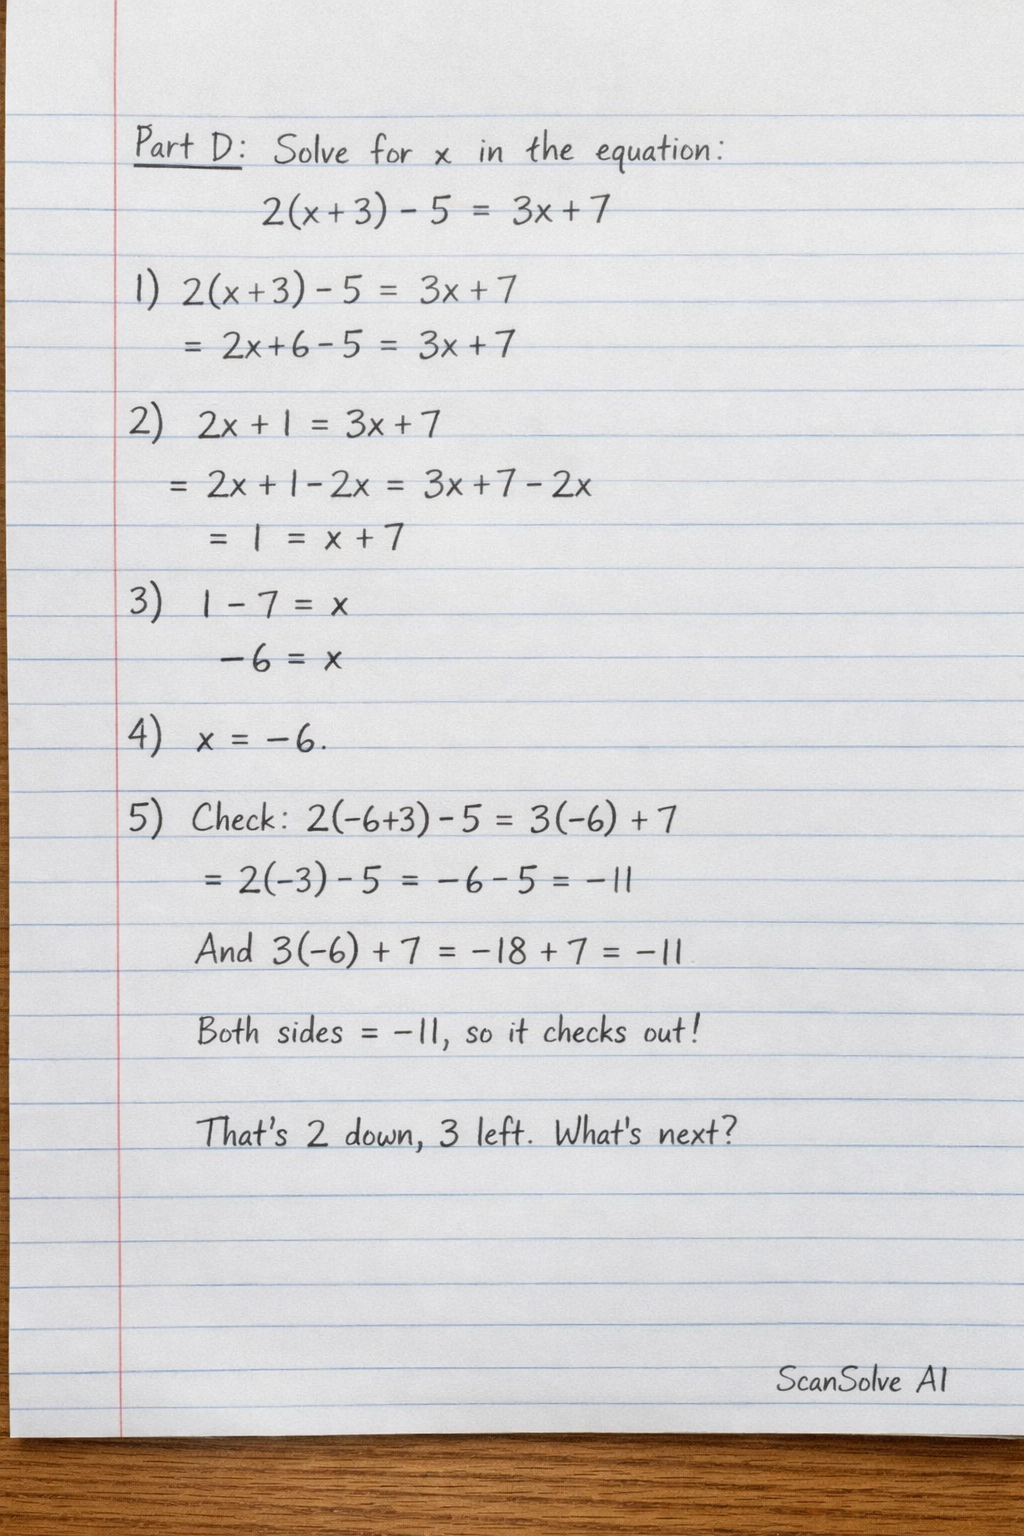 Part D: Solve for x in the equation:
2(x+3) - 5 = 3x+7
1) 2(x+3) - 5 = 3x+7
= 2x+6-5 = 3x+7
2) 2x + 1 = 3x+7
= 2x + 1 - 2x = 3x+7-2x
= 1 = x + 7
3) 1 - 7 = x
-6 = x
4) x = -6.
5) Check: 2(-6+3) - 5 = 3(-6) + 7
= 2(-3) - 5 = -6 - 5 = -11
And 3(-6) + 7 = -18 + 7 = -11
Both sides = -11, so it checks out!
That's 2 down, 3 left. What's next?
ScanSolve AI